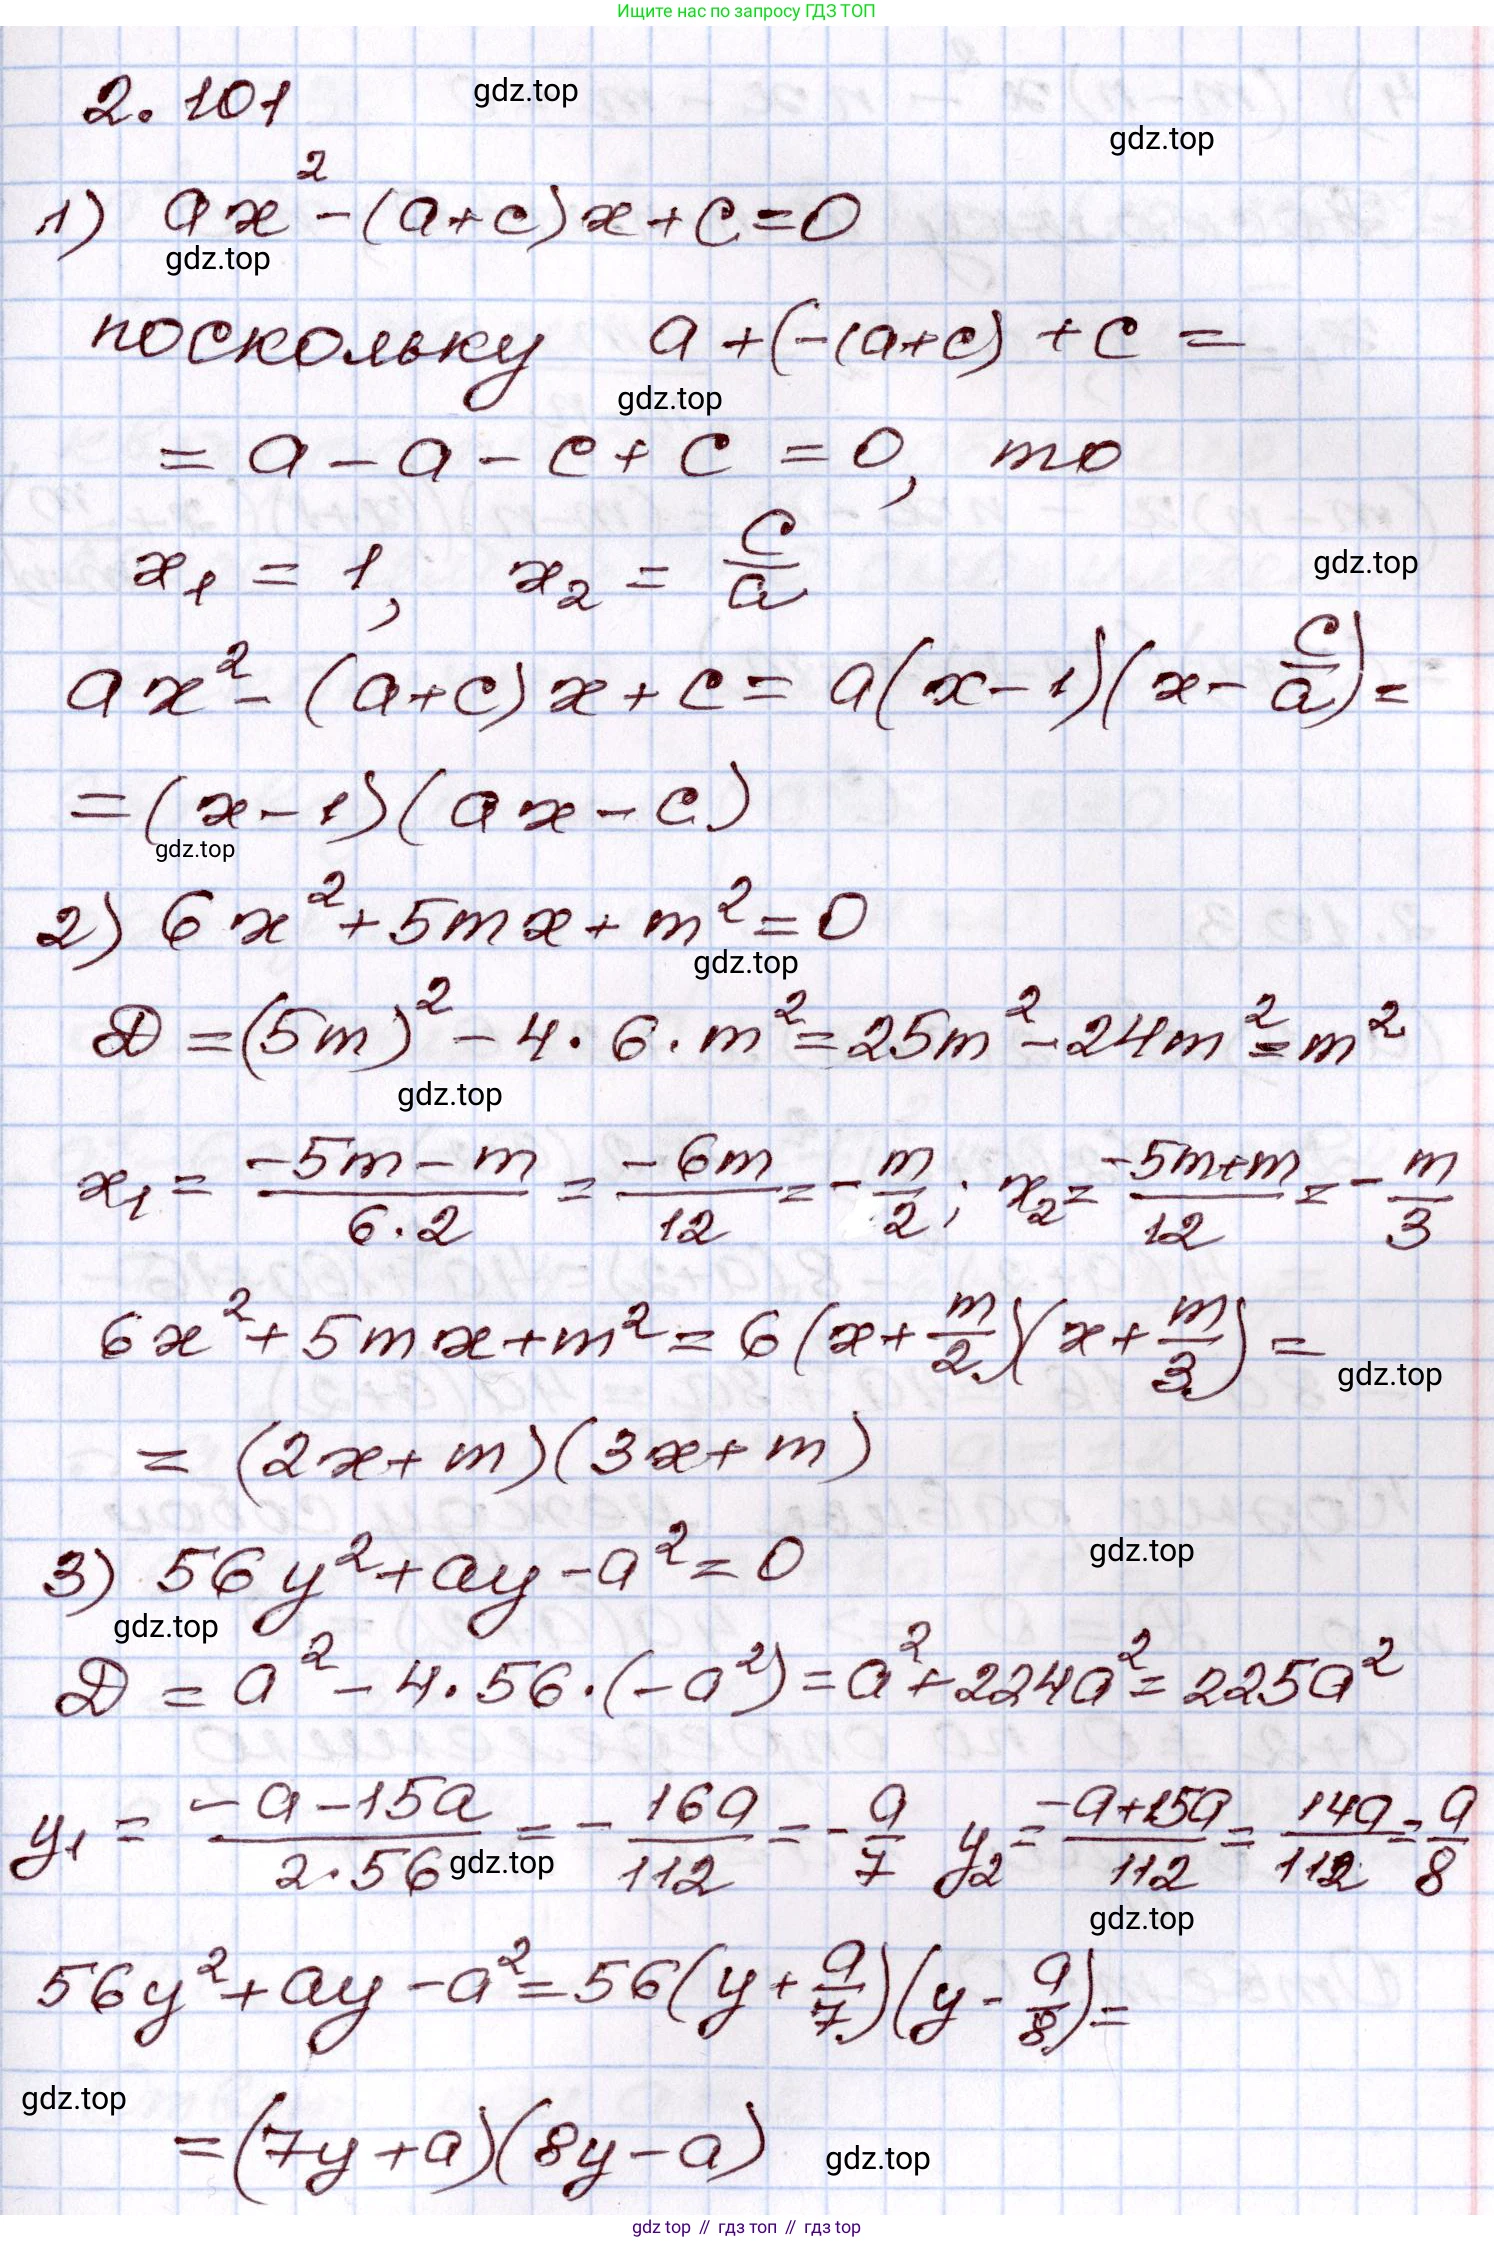 Ищите нас по запросу ГДЗ ТОП
2.101
gdz.top
gdz.top
1) ax² - (a+c)x + c = 0
gdz.top
поскольку a + (-(a+c) + c =
gdz.top
= a - a - c + c = 0, то
x₁ = 1, x₂ = c/a
gdz.top
ax² - (a+c)x + c = a(x-1)(x - c/a) =
= (x-1)(ax-c)
gdz.top
2) 6x² + 5mx + m² = 0
gdz.top
D = (5m)² - 4·6·m² = 25m² - 24m² = m²
gdz.top
x₁ = (-5m-m)/(6·2) = (-6m)/12 = -m/2; x₂ = (-5m+m)/12 = -m/3
6x² + 5mx + m² = 6(x + m/2)(x + m/3) =
gdz.top
= (2x+m)(3x+m)
gdz.top
3) 56y² + ay - a² = 0
gdz.top
D = a² - 4·56·(-a²) = a² + 224a² = 225a²
y₁ = (-a-15a)/(2·56) = -16a/112 = -a/7 y₂ = (-a+15a)/112 = 14a/112 = a/8
gdz.top
gdz.top
56y² + ay - a² = 56(y + a/7)(y - a/8) =
gdz.top
= (7y+a)(8y-a)
gdz.top
gdz top // гдз топ // gdz top